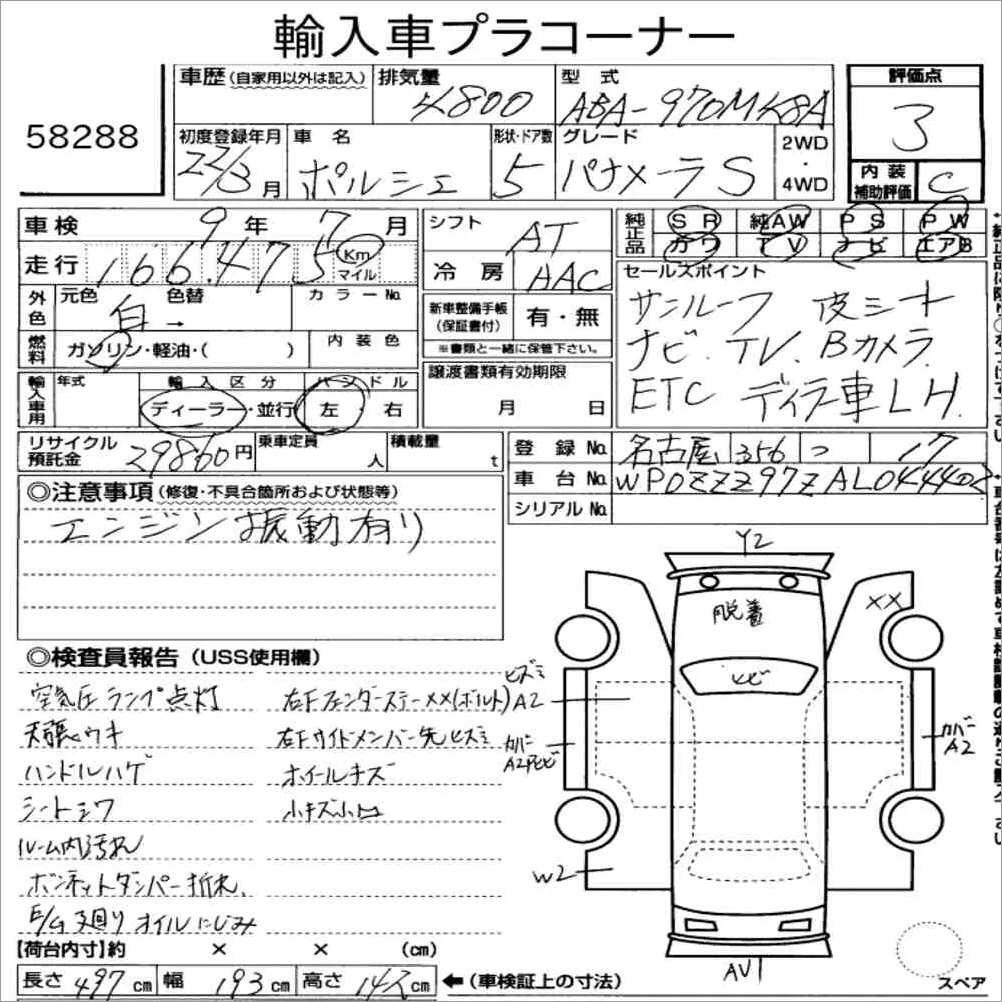 輸入車プラコーナー
58288
車歴(自家用以外は記入) 排気量 4800 型式 ABA-970M48A
評価点 3
初度登録年月 22/3月 車名 ポルシェ 形状・ドア数 5 グレード パナメーラS 2WD・4WD
内装補助評価 C
車検 9年 7月 シフト AT
純正品 SR 純AW PS PW
カワ TV ナビ エアB
走行 166,475 Km マイル 冷房 HAC
セールスポイント
サンルーフ 皮シート
ナビ.TV.Bカメラ
ETC ディラ車LH.
外色 元色 白→ 色替 カラーNo.
新車整備手帳(保証書付) 有・無
※書類と一緒に保管下さい。
燃料 ガソリン・軽油・( ) 内装色
輸入車用 年式 輸入区分 ディーラー・並行 ハンドル 左・右
譲渡書類有効期限 月 日
リサイクル預託金 29860円 乗車定員 人 積載量 t
登録No. 名古屋 356 つ 17
車台No. WP0ZZZ97ZAL044402
シリアルNo.
◎注意事項(修復・不具合箇所および状態等)
エンジン振動有り
◎検査員報告(USS使用欄)
空気圧ランプ点灯
天張りウキ
ハンドルハゲ
シートシワ
ルーム内汚れ
ボンネットダンパー折れ.
E/G廻りオイルにじみ
右Fフェンダーステー××(ボルト)
右Fサイドメンバー先ヒズミ
ホイールキズ
小キズ小凹
Y2
脱着
××
ヒビ
ヒズミ
A2
カバー
カバー
A2
W2
AV1
スペア
【荷台内寸】約 × × (cm)
長さ 497cm 幅 193cm 高さ 142cm ←(車検証上の寸法)